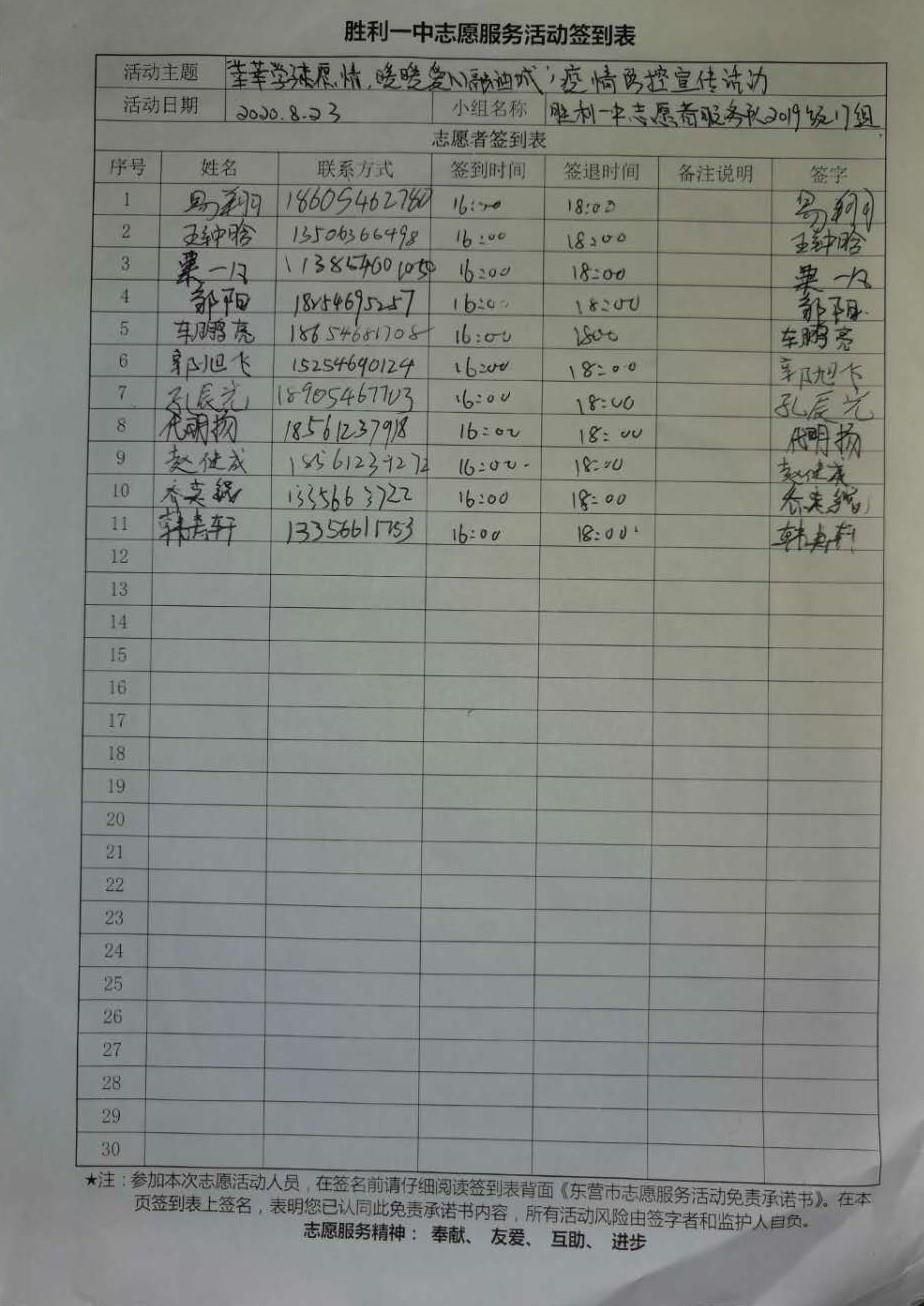 胜利一中志愿服务活动签到表
活动主题 莘莘学子志愿情,暖暖爱心融油城;疫情防控宣传活动
活动日期 2020.8.23 小组名称 胜利一中志愿者服务队2019级17组
志愿者签到表
序号 姓名 联系方式 签到时间 签退时间 备注说明 签字
1 易翔 18605462780 16:00 18:00 易翔
2 王钟晗 13506366498 16:00 18:00 王钟晗
3 栗一 13854601050 16:00 18:00 栗一
4 郭阳 18254695257 16:00 18:00 郭阳
5 车鹏亮 18654681708 16:00 1800 车鹏亮
6 郭旭飞 15254640124 16:00 18:00 郭旭飞
7 孔辰光 18905467703 16:00 18:00 孔辰光
8 代明扬 18561237918 16:00 18:00 代明扬
9 赵健成 16:00 18:00 赵健成
10 16:00 18:00
11 韩 轩 13356611753 16:00 18:00 韩 轩
12
13
14
15
16
17
18
19
20
21
22
23
24
25
26
27
28
29
30
★注:参加本次志愿活动人员,在签名前请仔细阅读签到表背面《东营市志愿服务活动免责承诺书》。在本
页签到表上签名,表明您已认同此免责承诺书内容,所有活动风险由签字者和监护人自负。
志愿服务精神: 奉献、 友爱、 互助、 进步